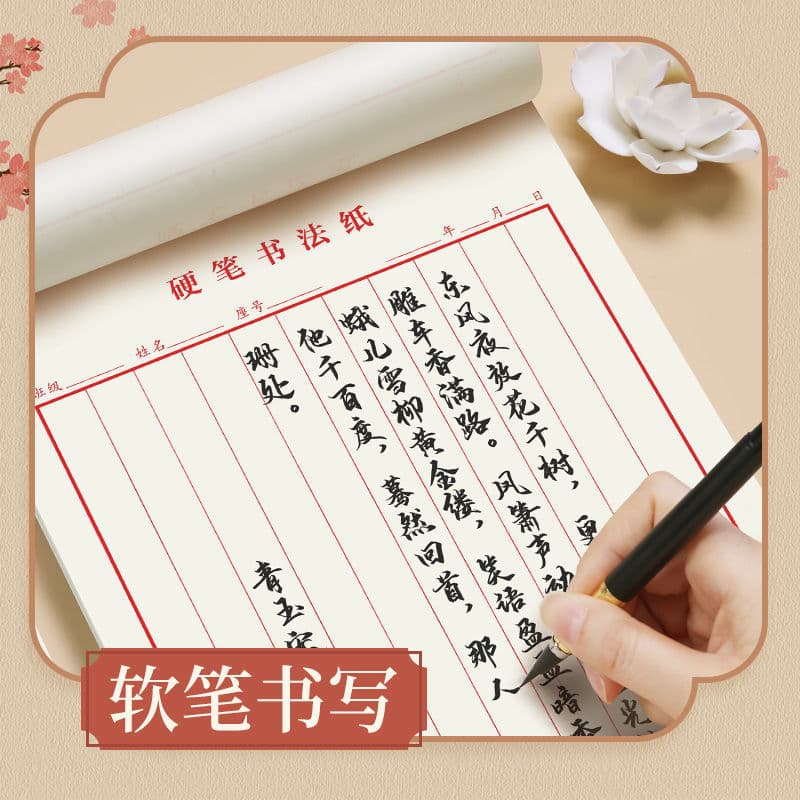 硬笔书法纸
班级 姓名 座号 年 月 日
东风夜放花千树，更
雕车香满路。凤箫声动 光
蛾儿雪柳黄金缕，笑语盈盈暗香
他千百度，蓦然回首，那人
珊处。
青玉案
软笔书写